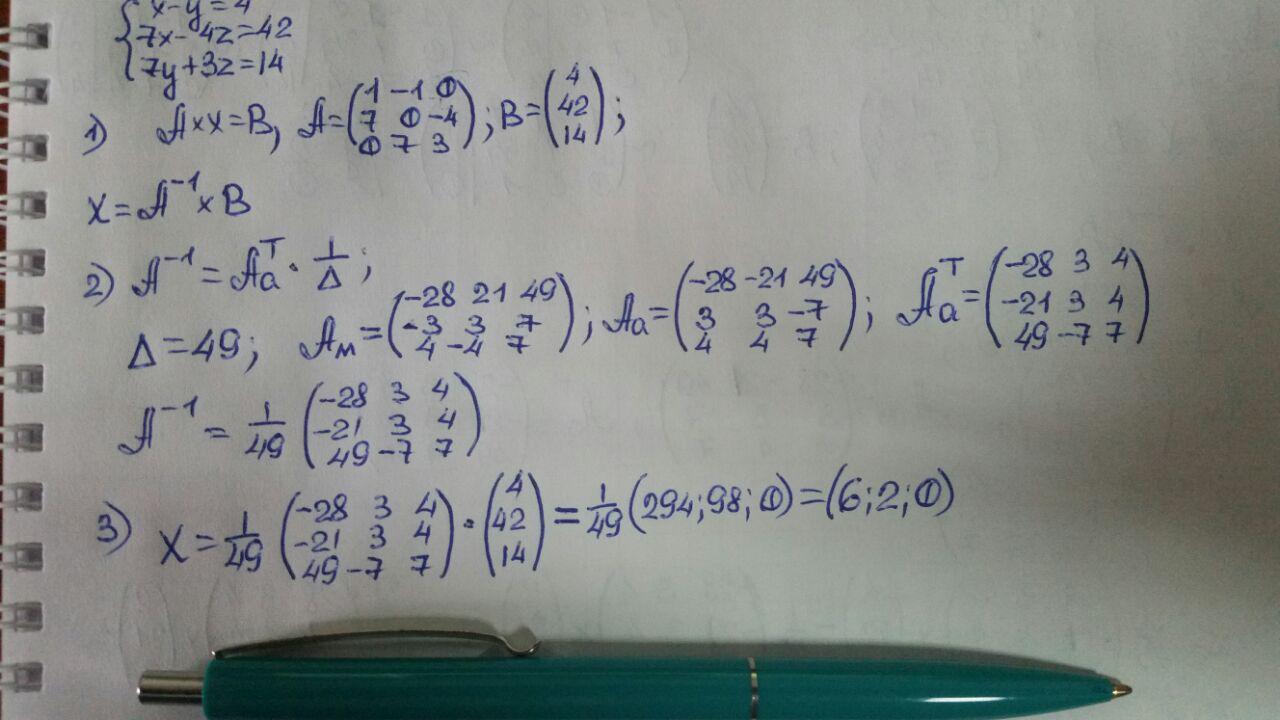 x-y=4
7x-4z=42
7y+3z=14
1) A×X=B, A=(1 -1 0; 7 0 -4; 0 7 3); B=(4; 42; 14);
X=A⁻¹×B
2) A⁻¹=Aₐᵀ·1/Δ;
Δ=49; Aм=(-28 21 49; -3 3 7; 4 -4 7); Aₐ=(-28 -21 49; 3 3 -7; 4 4 7); Aₐᵀ=(-28 3 4; -21 3 4; 49 -7 7)
A⁻¹=1/49(-28 3 4; -21 3 4; 49 -7 7)
3) X=1/49(-28 3 4; -21 3 4; 49 -7 7)·(4; 42; 14)=1/49(294;98;0)=(6;2;0)